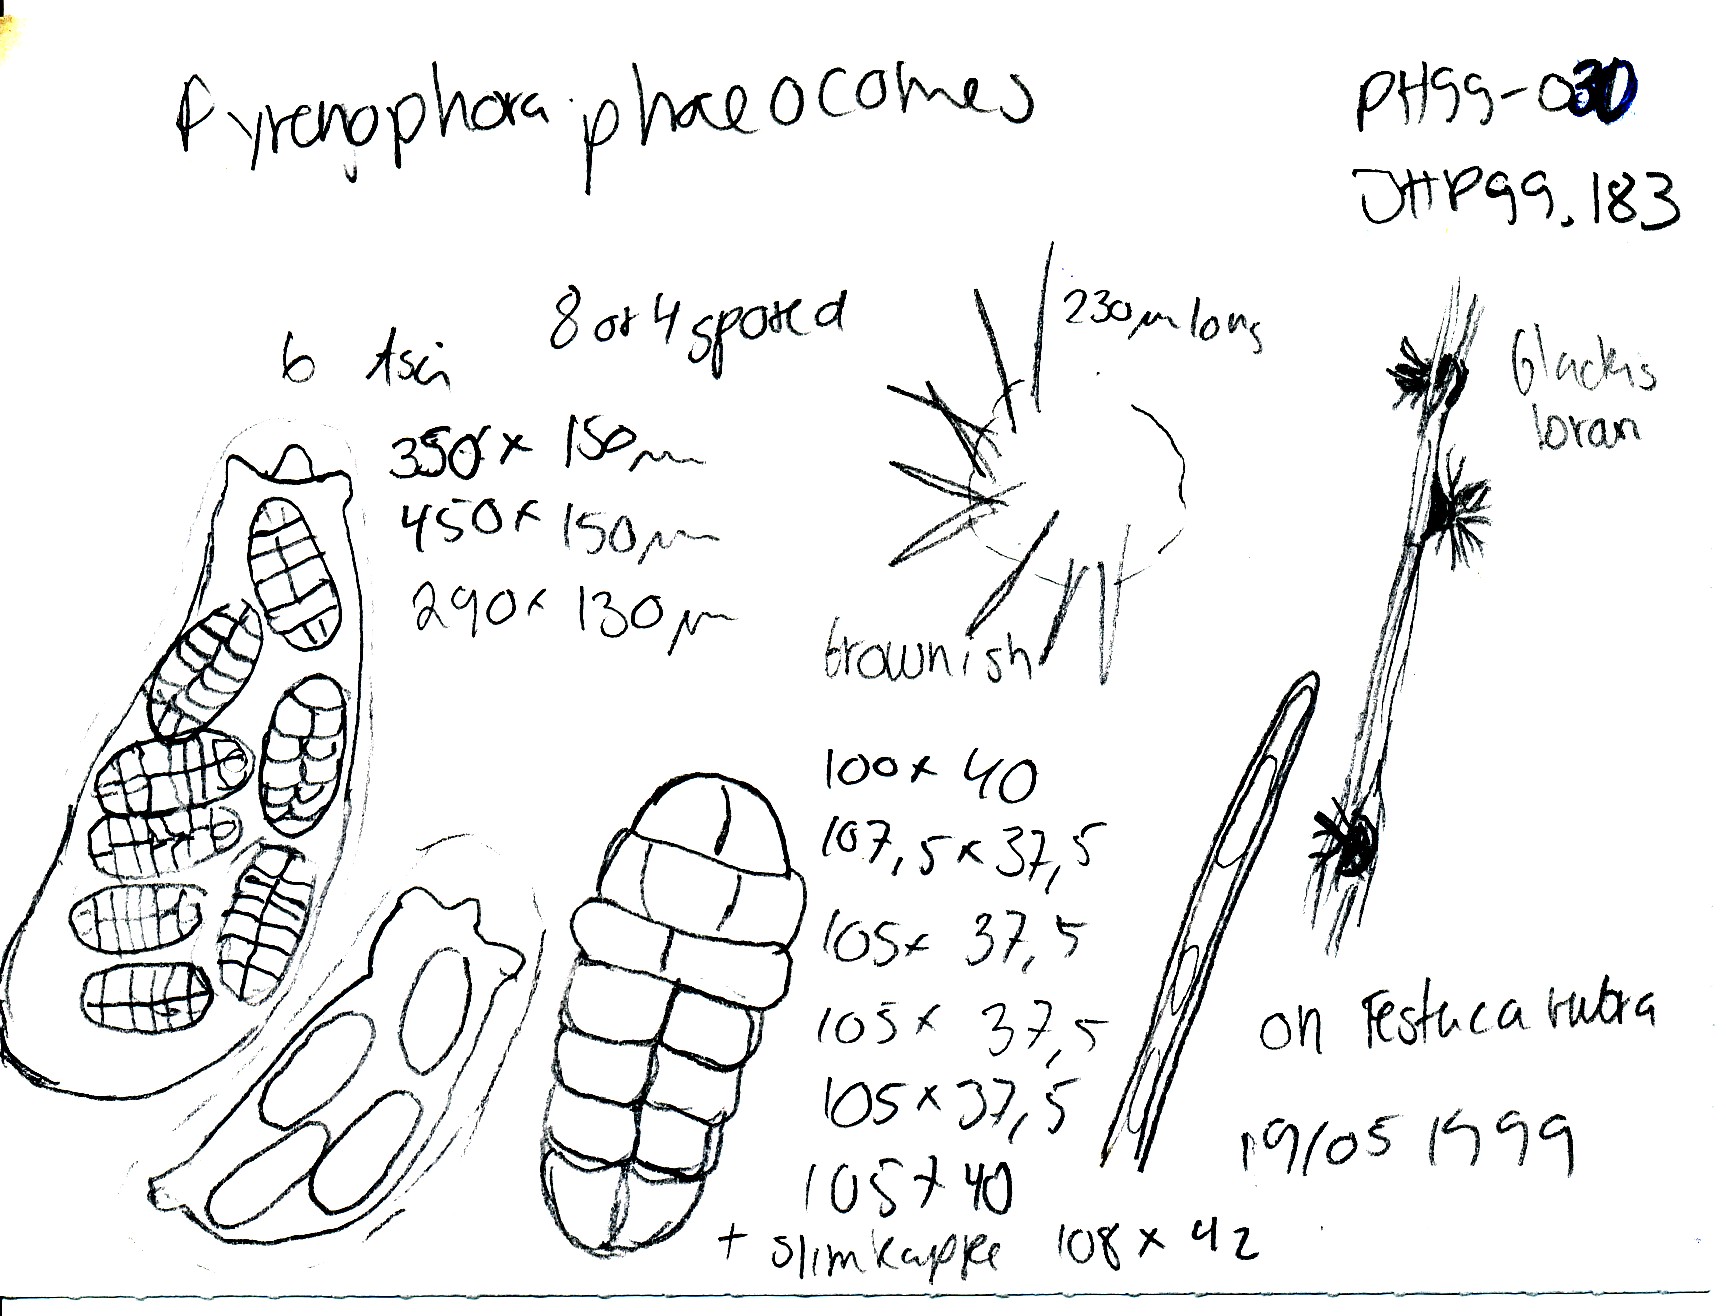 Pyrenophora phaeocomes
PH99-030
JHP99.183
8 or 4 spored
6 Asci
350 x 150 µm
450 x 150 µm
290 x 130 µm
230 µm long
brownish
100 x 40
107,5 x 37,5
105 x 37,5
105 x 37,5
105 x 37,5
105 x 40
+ slimkappe 108 x 42
on Festuca rubra
19/05 1999